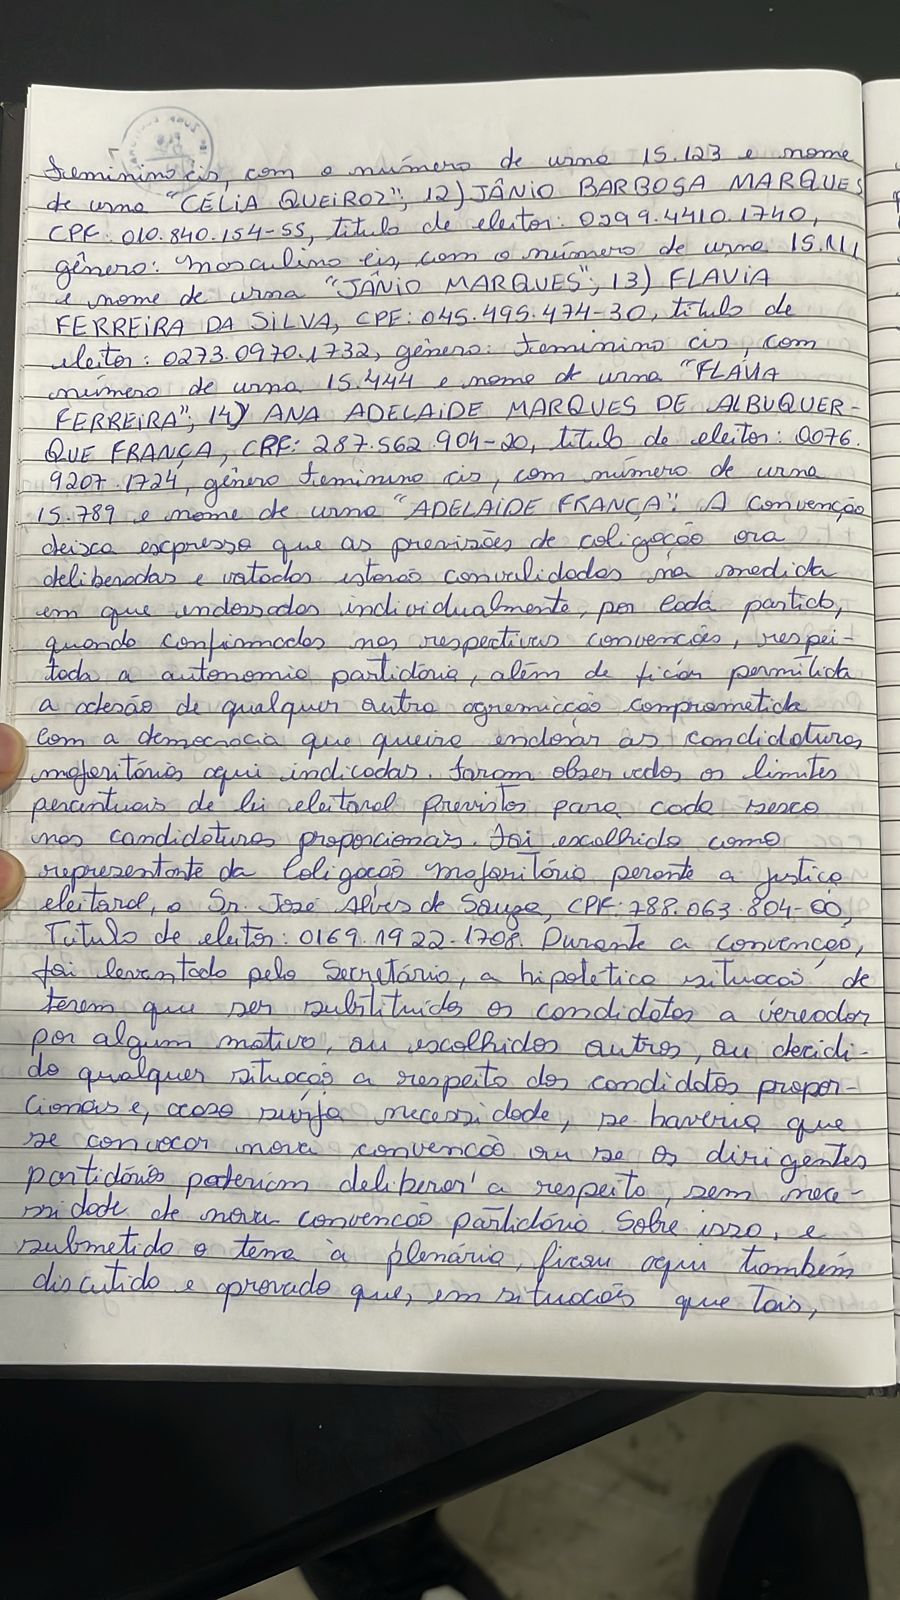 feminino cis, com o número de urna 15.123 e nome
de urna "CÉLIA QUEIROZ"; 12) JÂNIO BARBOSA MARQUES
CPF: 010.840.154-55, título de eleitor: 0299.4410.1740,
gênero: masculino cis, com o número de urna 15.111,
e nome de urna "JÂNIO MARQUES"; 13) FLAVIA
FERREIRA DA SILVA, CPF: 045.495.474-30, título de
eleitor: 0273.0970.1732, gênero: feminino cis, com
número de urna 15.444 e nome de urna "FLÁVIA
FERREIRA"; 14) ANA ADELAIDE MARQUES DE ALBUQUER-
QUE FRANÇA, CPF: 287.562.904-20, título de eleitor: 0076.
9207.1724, gênero feminino cis, com número de urna
15.789 e nome de urna "ADELAIDE FRANÇA". A Convenção
deixa expresso que as previsões de coligação ora
deliberadas e votadas estarão convalidadas na medida
em que endossadas individualmente, por cada partido,
quando confirmadas nas respectivas convenções, respei-
tada a autonomia partidária, além de ficar permitida
a adesão de qualquer outra agremiação comprometida
com a democracia que queira endossar as candidaturas
majoritárias aqui indicadas. Foram observados os limites
percentuais de lei eleitoral previstos para cada sexo
nas candidaturas proporcionais. Foi escolhido como
representante da Coligação majoritária perante a justiça
eleitoral, o Sr. José Alves de Souza, CPF: 788.063.804-00,
Título de eleitor: 0169.1922.1708. Durante a convenção,
foi levantado pelo Secretário, a hipotética situação de
terem que ser substituídos os candidatos a vereador
por algum motivo, ou escolhidos outros, ou decidi-
do qualquer situação a respeito dos candidatos propor-
cionais e, caso surja necessidade, se haveria que
se convocar nova convenção ou se os dirigentes
partidários poderiam deliberar a respeito, sem nece-
ssidade de nova convenção partidária. Sobre isso, e
submetido o tema à plenária, ficou aqui também
discutido e aprovado que, em situações que tais,